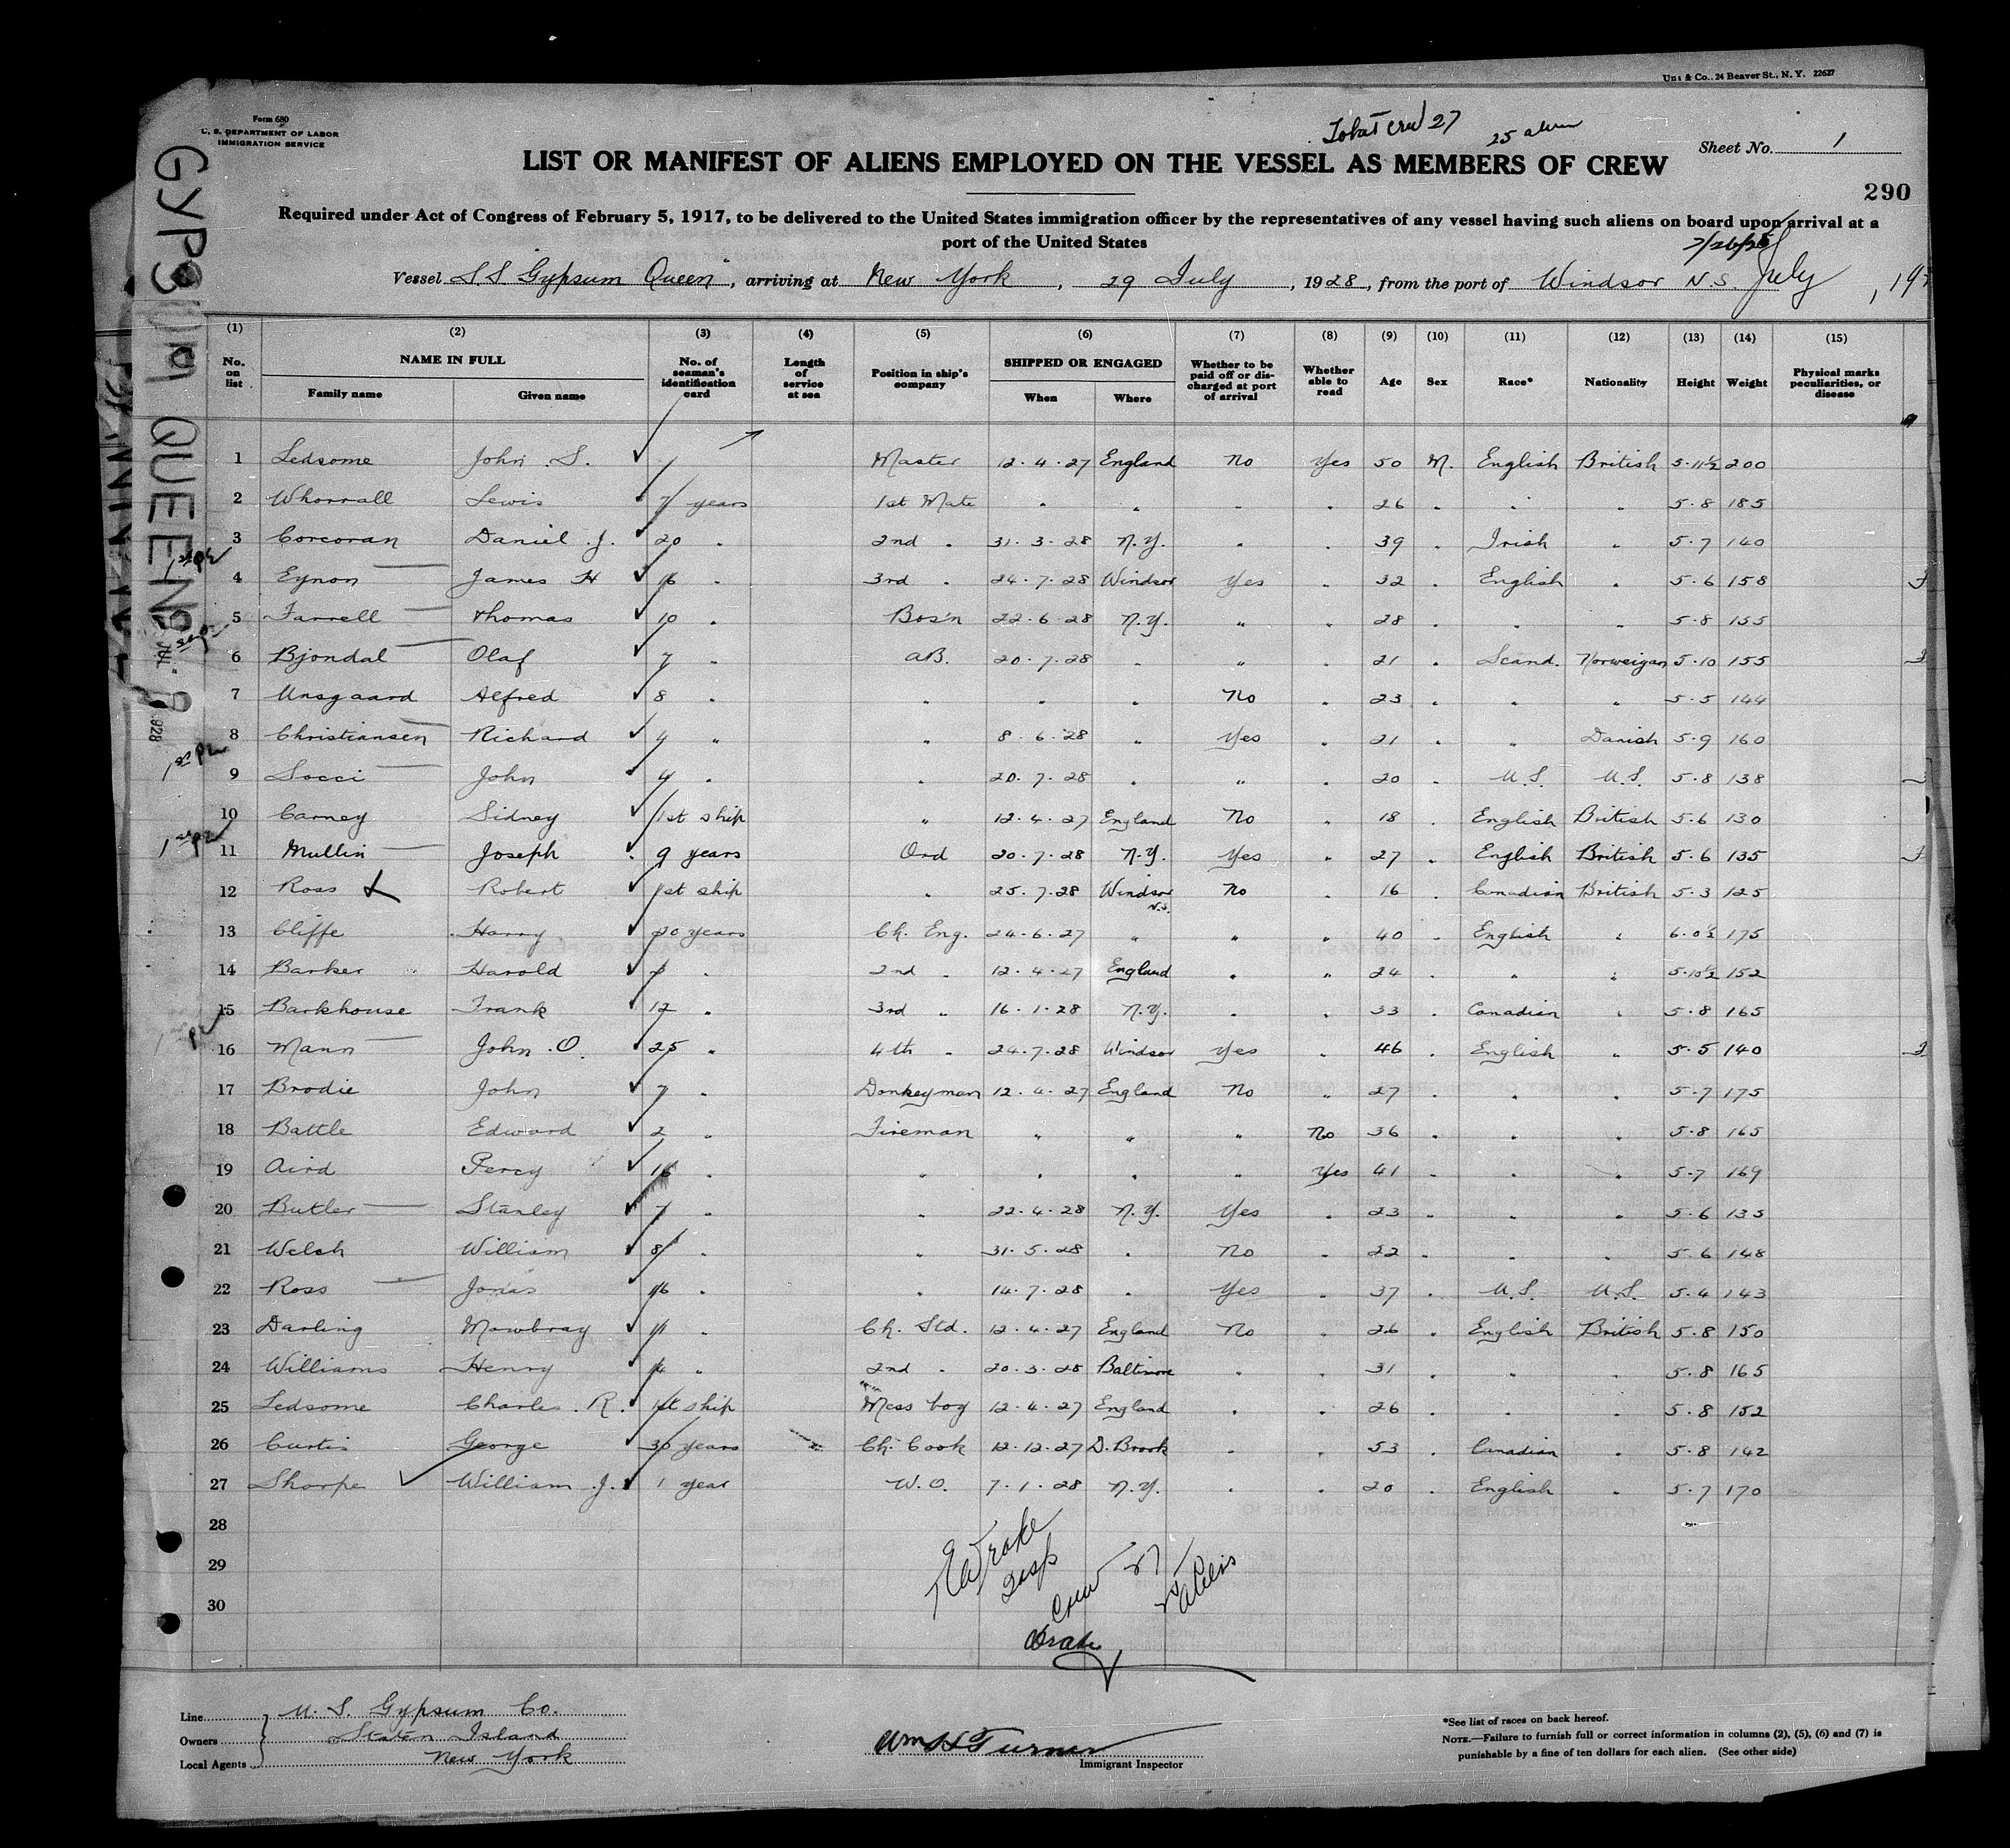 Uns & Co., 24 Beaver St., N. Y. 22627
Form 680
U. S. DEPARTMENT OF LABOR
IMMIGRATION SERVICE
Total Crew 27
25 alien
Sheet No. 1
LIST OR MANIFEST OF ALIENS EMPLOYED ON THE VESSEL AS MEMBERS OF CREW
290
Required under Act of Congress of February 5, 1917, to be delivered to the United States immigration officer by the representatives of any vessel having such aliens on board upon arrival at a
port of the United States
Vessel S.S Gypsum Queen, arriving at New York, 29 July, 1928, from the port of Windsor N.S. July, 19
GYPSUM QUEEN
(1) (2) (3) (4) (5) (6) (7) (8) (9) (10) (11) (12) (13) (14) (15)
No. on list NAME IN FULL Family name Given name No. of seaman's identification card Length of service at sea Position in ship's company SHIPPED OR ENGAGED When Where Whether to be paid off or discharged at port of arrival Whether able to read Age Sex Race* Nationality Height Weight Physical marks peculiarities, or disease
1 Ledsome John .S. Master 12.4.27 England No Yes 50 M. English British 5.11½ 200
2 Whorrall Lewis 7 years 1st Mate " " " " 26 " " " 5.8 185
3 Corcoran Daniel .J. 20 " 2nd " 31.3.28 N.Y. " " 39 " Irish " 5.7 140
4 Eynon James H 16 " 3rd " 24.7.28 Windsor Yes " 32 " English " 5.6 158
5 Farrell Thomas 10 " Bos'n 22.6.28 N.Y. " " 28 " " " 5.8 155
6 Bjondal Olaf 7 " AB. 20.7.28 " " " 21 " Scand. Norweigan 5.10 155
7 Unsgaard Alfred 8 " " " " No " 23 " " " 5.5 144
8 Christiansen Richard 4 " " 8.6.28 " Yes " 21 " " Danish 5.9 160
9 Socci John 4 " " 20.7.28 " " " 20 " U.S. U.S. 5.8 138
10 Carney Sidney 1st ship " 12.4.27 England No " 18 " English British 5.6 130
11 Mullin Joseph 9 years Ord 20.7.28 N.Y. Yes " 27 " English British 5.6 135
12 Ross Robert 1st ship " 25.7.28 Windsor N.S. No " 16 " Canadian British 5.3 125
13 Cliffe Harry 20 years Ch. Eng. 24.6.27 " " " 40 " English " 6.0½ 175
14 Barker Harold " 2nd " 12.4.27 England " " 24 " " " 5.10½ 152
15 Barkhouse Frank 12 " 3rd " 16.1.28 N.Y. " " 33 " Canadian " 5.8 165
16 Mann John .O. 25 " 4th " 24.7.28 Windsor Yes " 46 " English " 5.5 140
17 Brodie John 7 " Donkeyman 12.4.27 England No " 27 " " " 5.7 175
18 Battle Edward 2 " Fireman " " " No 36 " " " 5.8 165
19 Aird Percy 16 " " " " " Yes 41 " " " 5.7 169
20 Butler Stanley 7 " " 22.4.28 N.Y. Yes " 23 " " " 5.6 135
21 Welsh William 8 " " 31.5.28 " No " 22 " " " 5.6 148
22 Ross Jonas 16 " " 14.7.28 " Yes " 37 " U.S. U.S. 5.4 143
23 Darling Mowbray 11 " Ch. Std. 12.4.27 England No " 26 " English British 5.8 150
24 Williams Henry 14 " 2nd " 20.3.28 Baltimore " " 31 " " " 5.8 165
25 Ledsome Charles .R. 1st ship Mess boy 12.4.27 England " " 26 " " " 5.8 152
26 Curtis George 30 years Ch. Cook 12.12.27 D. Brook " " 53 " Canadian " 5.8 142
27 Sharpe William .J. 1 year W.O. 7.1.28 N.Y. " " 20 " English " 5.7 170
28
29
30
Drake
Insp
Crew 27
Drake
Line U. S. Gypsum Co.
Owners Staten Island
Local Agents New York
Wm H Turner
Immigrant Inspector
*See list of races on back hereof.
NOTE.—Failure to furnish full or correct information in columns (2), (5), (6) and (7) is
punishable by a fine of ten dollars for each alien. (See other side)